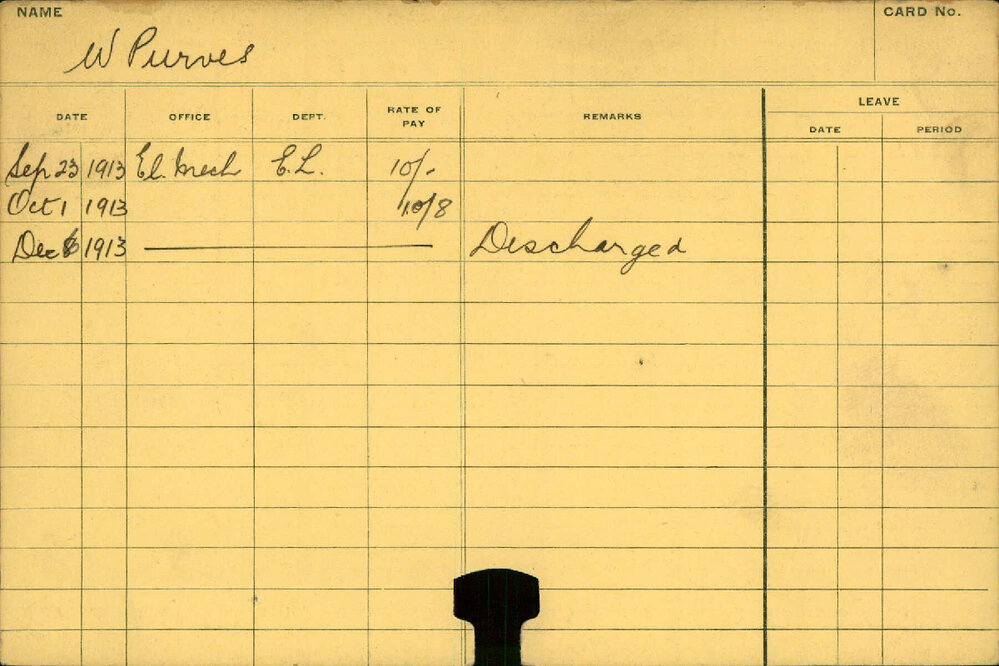 NAME CARD No.
W Purves
LEAVE
DATE OFFICE DEPT. RATE OF PAY REMARKS DATE PERIOD
Sep 23 1913 El. Mech E.L. 10/-
Oct 1 1913 10/8
Dec 6 1913 Discharged